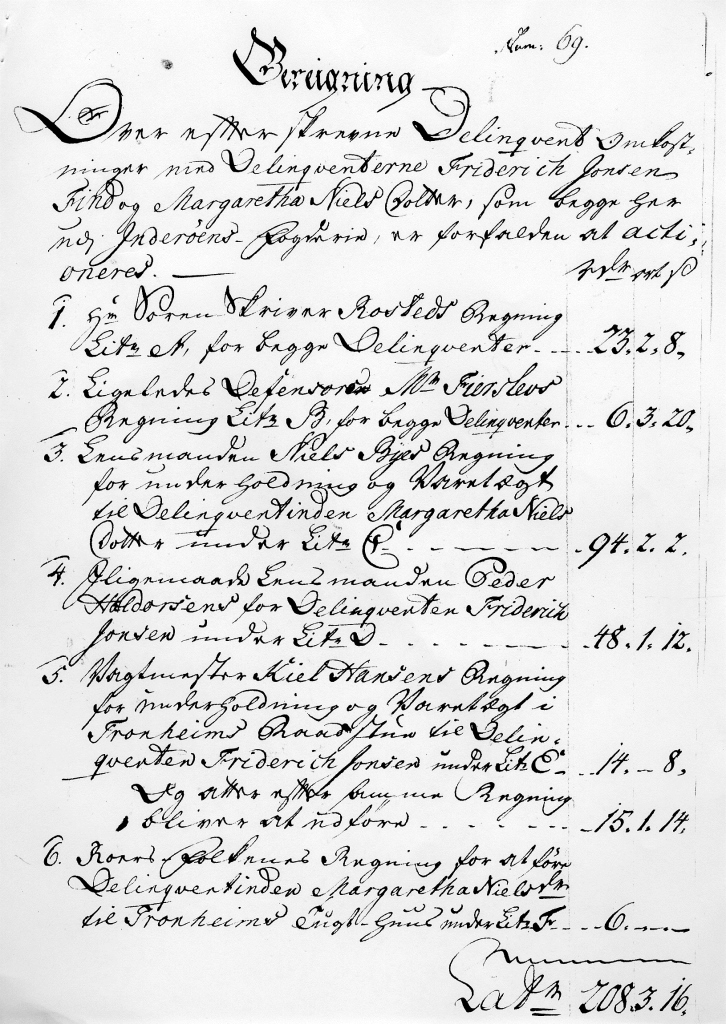 Num: 69.
Bereigning
Over efter skrevne Delinqvent Omkost-
ninger med Delinqventerne Friderich Jonsen
Find og Margaretha Niels Dotter, som begge her
udj Inderöens Fogderie, er forfalden at acti-
oneres. — rdr ort s
1. Hr Sören Skriver Rosteds Regning
Litr A, for begge Delinqventer - - 23. 2. 8.
2. Ligeledes Defensoren Mr Fierslevs
Regning Litr B, for begge Delinqventer - - 6. 3. 20.
3. Lensmanden Niels Byes Regning
for underholdning og Varetægt
til Delinqventinden Margaretha Niels
Dotter under Litr C - - - - 94. 2. 2.
4. Iligemaade Lensmanden Peder
Haldorsens for Delinqventen Friderich
Jonsen under Litr D - - - - 48. 1. 12.
5. Vagtmester Kiel Hansens Regning
for underholdning og Varetægt i
Tronheims Raadstue til Delin-
qventen Friderich Jonsen under Litr E - 14. – 8.
Og atter efter samme Regning
bliver at udföre - - - - 15. 1. 14.
6. Roers-Folkenes Regning for at före
Delinqventinden Margaretha Nielsdr
til Tronheims Tugt-Huus under Litr F - - 6. – –
Latr 208. 3. 16.